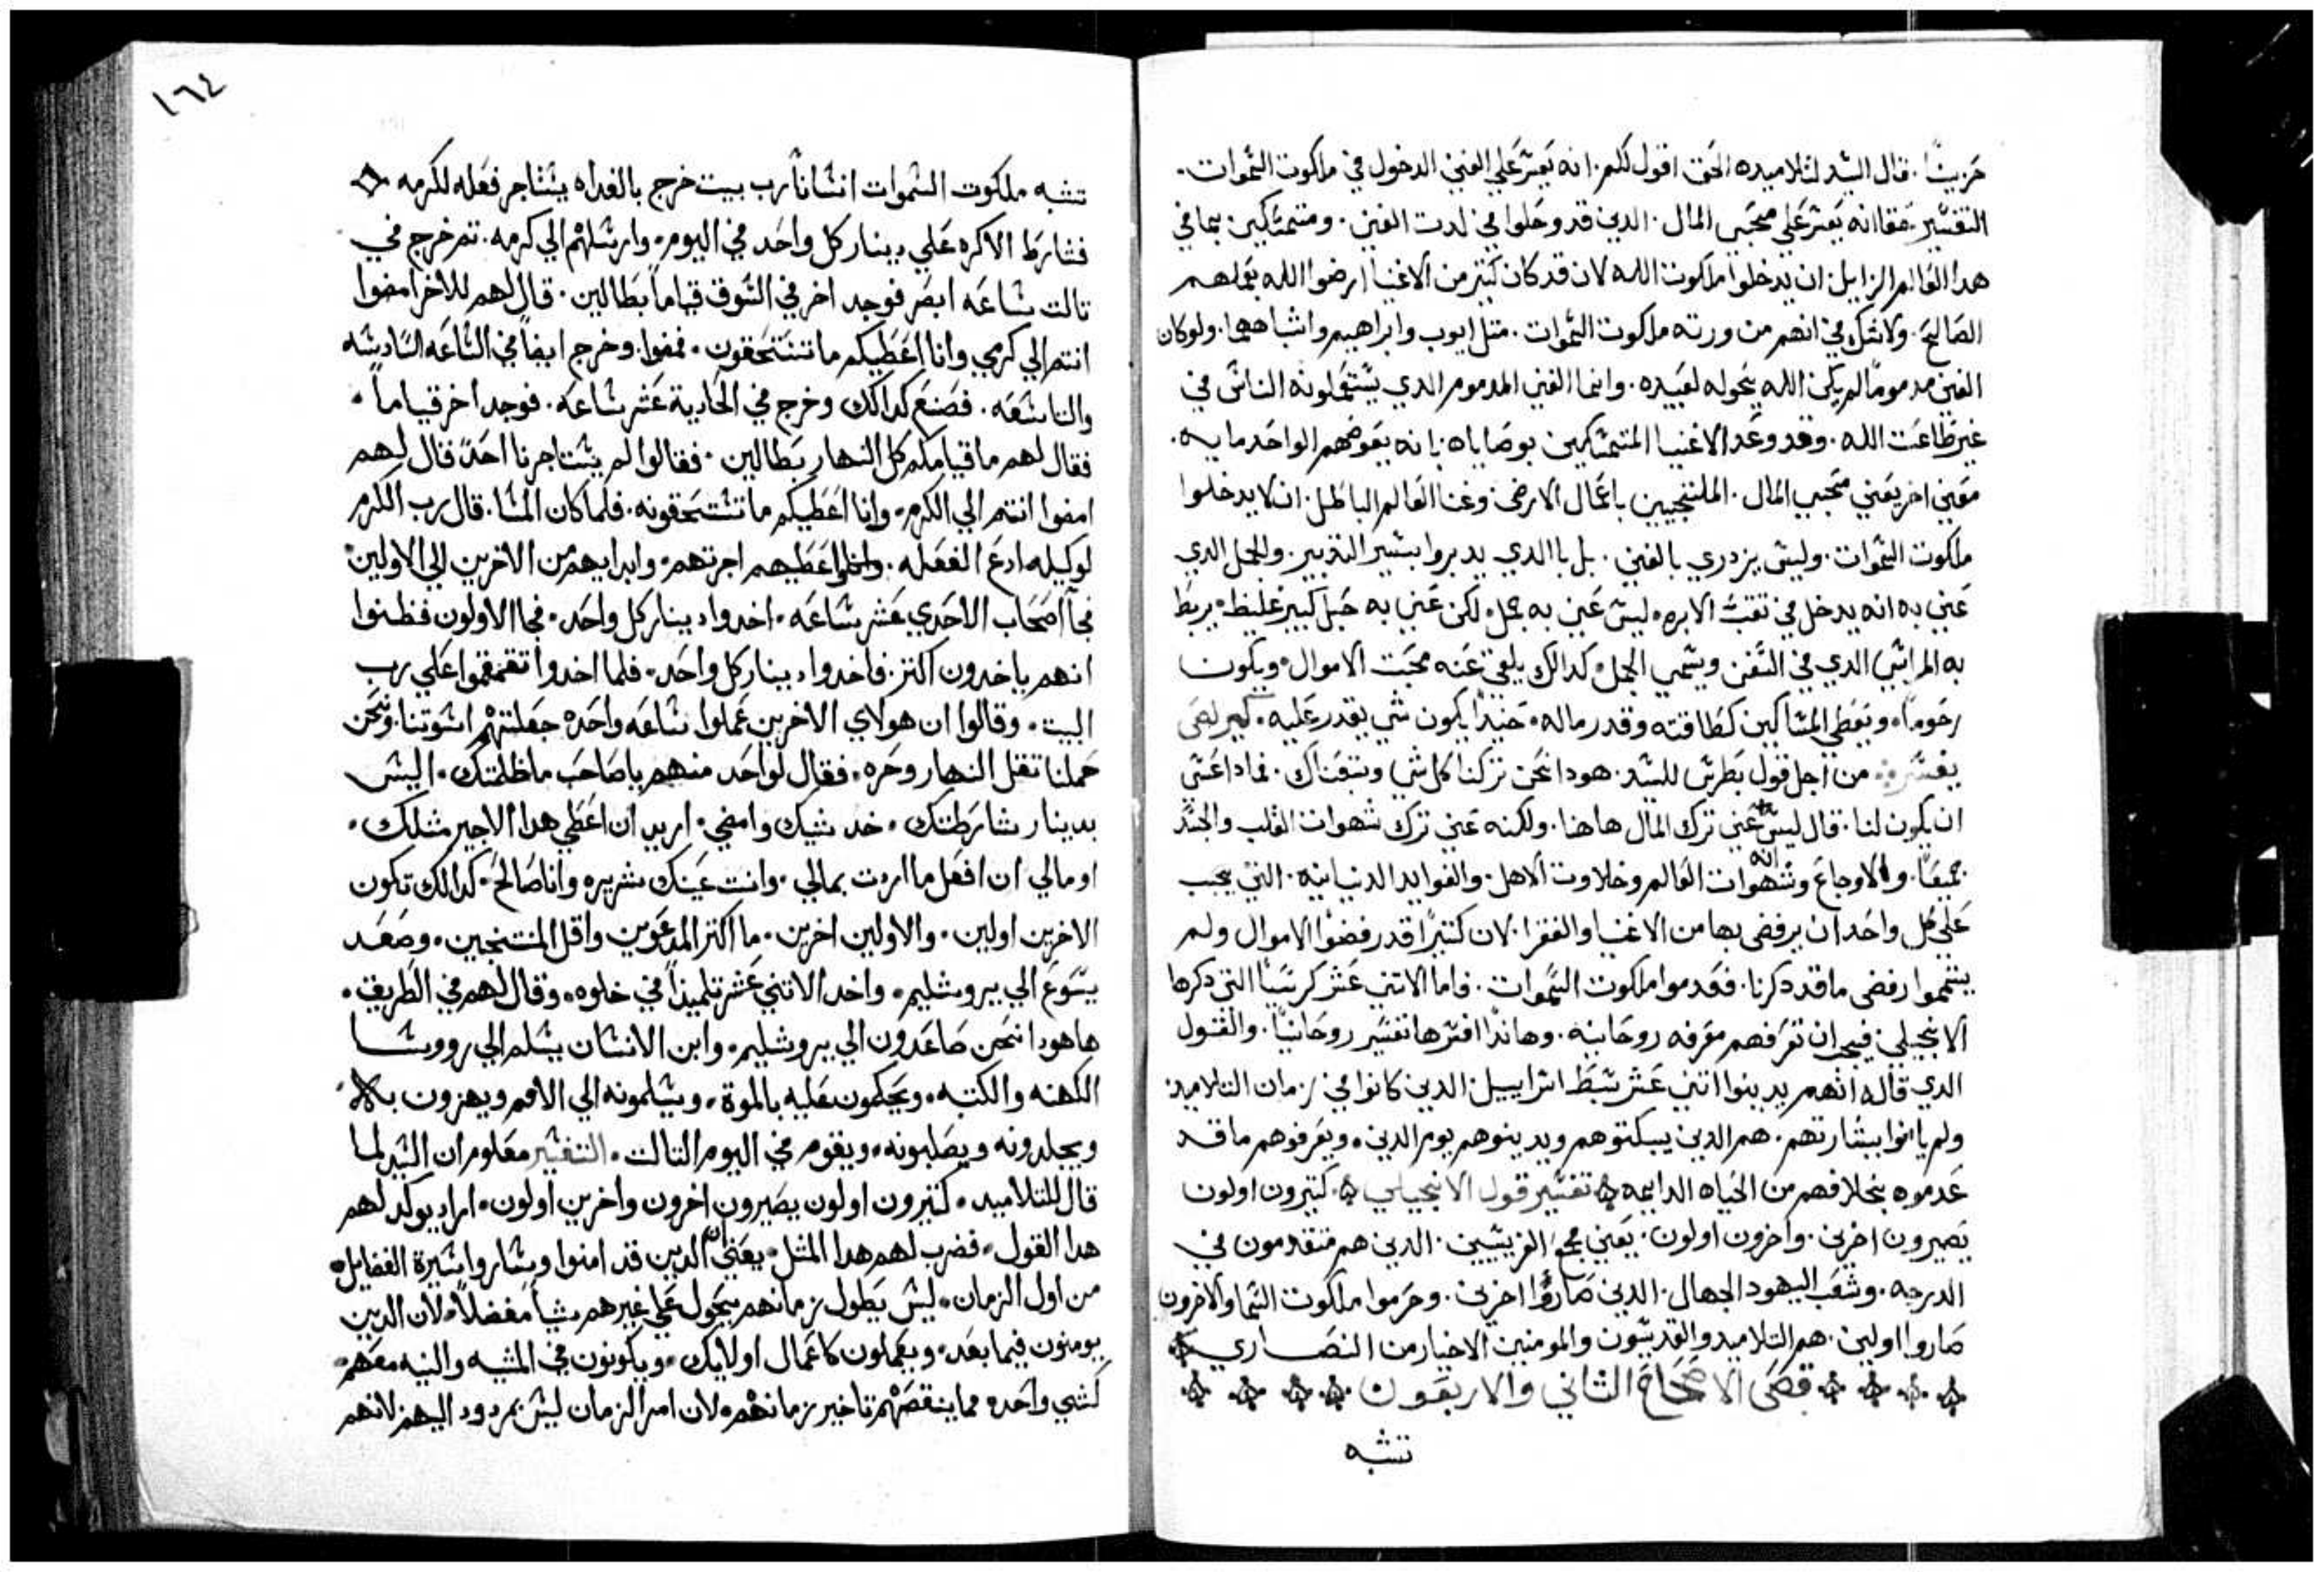 حزينًا. قال السيد لتلاميده الحق اقول لكم. انه يعسر علي الغني الدخول في ملكوت السموات.
التفسير. حقا انه يعسر علي محبي المال. الدين قد وحلوا في لدت الغني. ومتمسكين بما في
هدا العالم الزايل ان يدخلوا ملكوت الله لان قد كان كتير من الاغنيا ارضوا الله بعملهم
الصالح. ولا شك في انهم من ورته ملكوت السموات. متل ايوب وابراهيم واشباههما. ولو كان
الغني مدمومًا لم يكن الله يخوله لعبيده. وانما الغني المدموم الدي يستعملونه الناس في
غير طاعت الله. وقد وعد الاغنيا المتمسكين بوصاياه. بانه يعوضهم الواحد مايه.
معني اخر يعني محبي المال. الملتجيين باعمال الارض وغنا العالم الباطل. ان لا يدخلوا
ملكوت السموات. وليس يزدري بالغني. بل باالدي يدبروا بشير التدبير. والجمل الدي
عني به انه يدخل في تقب الابره. ليس عني به جمل. لكن عني به حبل كبير غليظ. يربط
به المراسي الدي في السفن ويسمي الجمل. كدالك يلقي عنه محبت الاموال. ويكون
رحومًا. ويعطي المساكين كطاقته وقدر ماله. حنيدًا يكون شي يقدر عليه.
يفسر من اجل قول بطرس للسيد. هودا نحن تركنا كل شي وتبعناك. فمادا عسي
ان يكون لنا. قال ليس عني ترك المال هاهنا. ولكنه عني ترك شهوات القلب والجسد
جميعًا. والاوجاع وشهوات العالم وخلاوت الاهل. والفوايد الدنيانيه. التي يجب
علي كل واحد ان يرفض بها من الاغنيا والفقرا. لان كتيرًا قد رفضوا الاموال ولم
يتمموا رفض ما قد دكرنا. فعدموا ملكوت السموات. فاما الاتني عشر كرسيًا التي دكرها
الانجيلي فيجب ان تعرفهم معرفه روحانيه. وهاندا افسرها تفسير روحانيًا. والقول
الدي قاله انهم يدينوا اتني عشر سبط اسراييل الدين كانوا في زمان التلاميد.
ولم يامنوا ببشارتهم. هم الدين يسكتوهم ويدينوهم يوم الدين. ويعرفوهم ما قد
عدموه بخلافهم من الحياه الدايمه تفسير قول الانجيلي كتيرون اولون
يصيرون اخرين. واخرون اولون. يعني مجمع الفريسيين. الدين هم متقدمون في
الدرجه. وشعب اليهود الجهال. الدين صاروا اخرين. وحرموا ملكوت السما والاخرون
صاروا اولين. هم التلاميد والقديسون والمومنين الاخيار من النصاري
قصي الاصحاح التاني والاربعون
تشبه
١٦٤
تشبه ملكوت السموات انسانًا رب بيت خرج بالغداه يستاجر فعله لكرمه
فشارط الاكره علي دينار كل واحد في اليوم. وارسلهم الي كرمه. تم خرج في
تالت ساعه ابصر فوجد اخر في السوق قيامًا بطالين. قال لهم للاخر امضوا
انتم الي كرمي وانا اعطيكم ما تستحقون. فمضوا. وخرج ايضًا في الساعه السادسه
والتاسعه. فصنع كدالك وخرج في الحادية عشر ساعه. فوجد اخر قيامًا.
فقال لهم ما قيامكم كل النهار بطالين. فقالوا لم يستاجرنا احدً قال لهم
امضوا انتم الي الكرم. وانا اعطيكم ما تستحقونه. فلما كان المسا. قال رب الكرم
لوكيله ادع الفعله. واعطيهم اجرتهم. وابدا بهم من الاخرين الي الاولين
فجآ اصحاب الاحدي عشر ساعه. اخدوا دينار كل واحد. فجا الاولون فظنوا
انهم ياخدون اكتر. فاخدوا دينار كل واحد. فلما اخدوا تقمقموا علي رب
البيت. وقالوا ان هولاي الاخرين عملوا ساعه واحده جعلتهم اسوتنا. ونحن
حملنا تقل النهار وحره. فقال لواحد منهم يا صاحب ما ظلمتك. اليس
بدينار شارطتك. خد شيك وامضي. اريد ان اعطي هدا الاجير مثلك.
او مالي ان افعل ما اردت بمالي. وانت عينك شريره وانا صالح. كدالك تكون
الاخرين اولين. والاولين اخرين. ما اكتر المدعوين واقل المنتجبين. وصعد
يسوع الي يروشليم. واخد الاتني عشر تلميدًا في خلوه. وقال لهم في الطريق.
هاهودا نحن صاعدون الي يروشليم. وابن الانسان يسلم الي روسا
الكهنه والكتبه. ويحكمون عليه بالموة. ويسلمونه الي الامم ويهزون به.
ويجلدونه ويصلبونه. ويقوم في اليوم التالت. التفسير معلوم ان السيد لما
قال للتلاميد. كتيرون اولون يصيرون اخرون واخرين اولون. اراد يوكد لهم
هدا القول. فضرب لهم هدا المتل. يعني ان الدين قد امنوا وساروا سيرة الفضايل.
من اول الزمان. ليس بطول زمانهم يتحول علي غيرهم شيأ مفضلاً. لان الدين
يومنون فيما بعد. ويعملون كاعمال اولايك. ويكونون في المشيه والنيه معهم.
كشي واحد. مما ينقصهم تاخير زمانهم. لان امر الزمان ليس بمردود اليهم لانهم